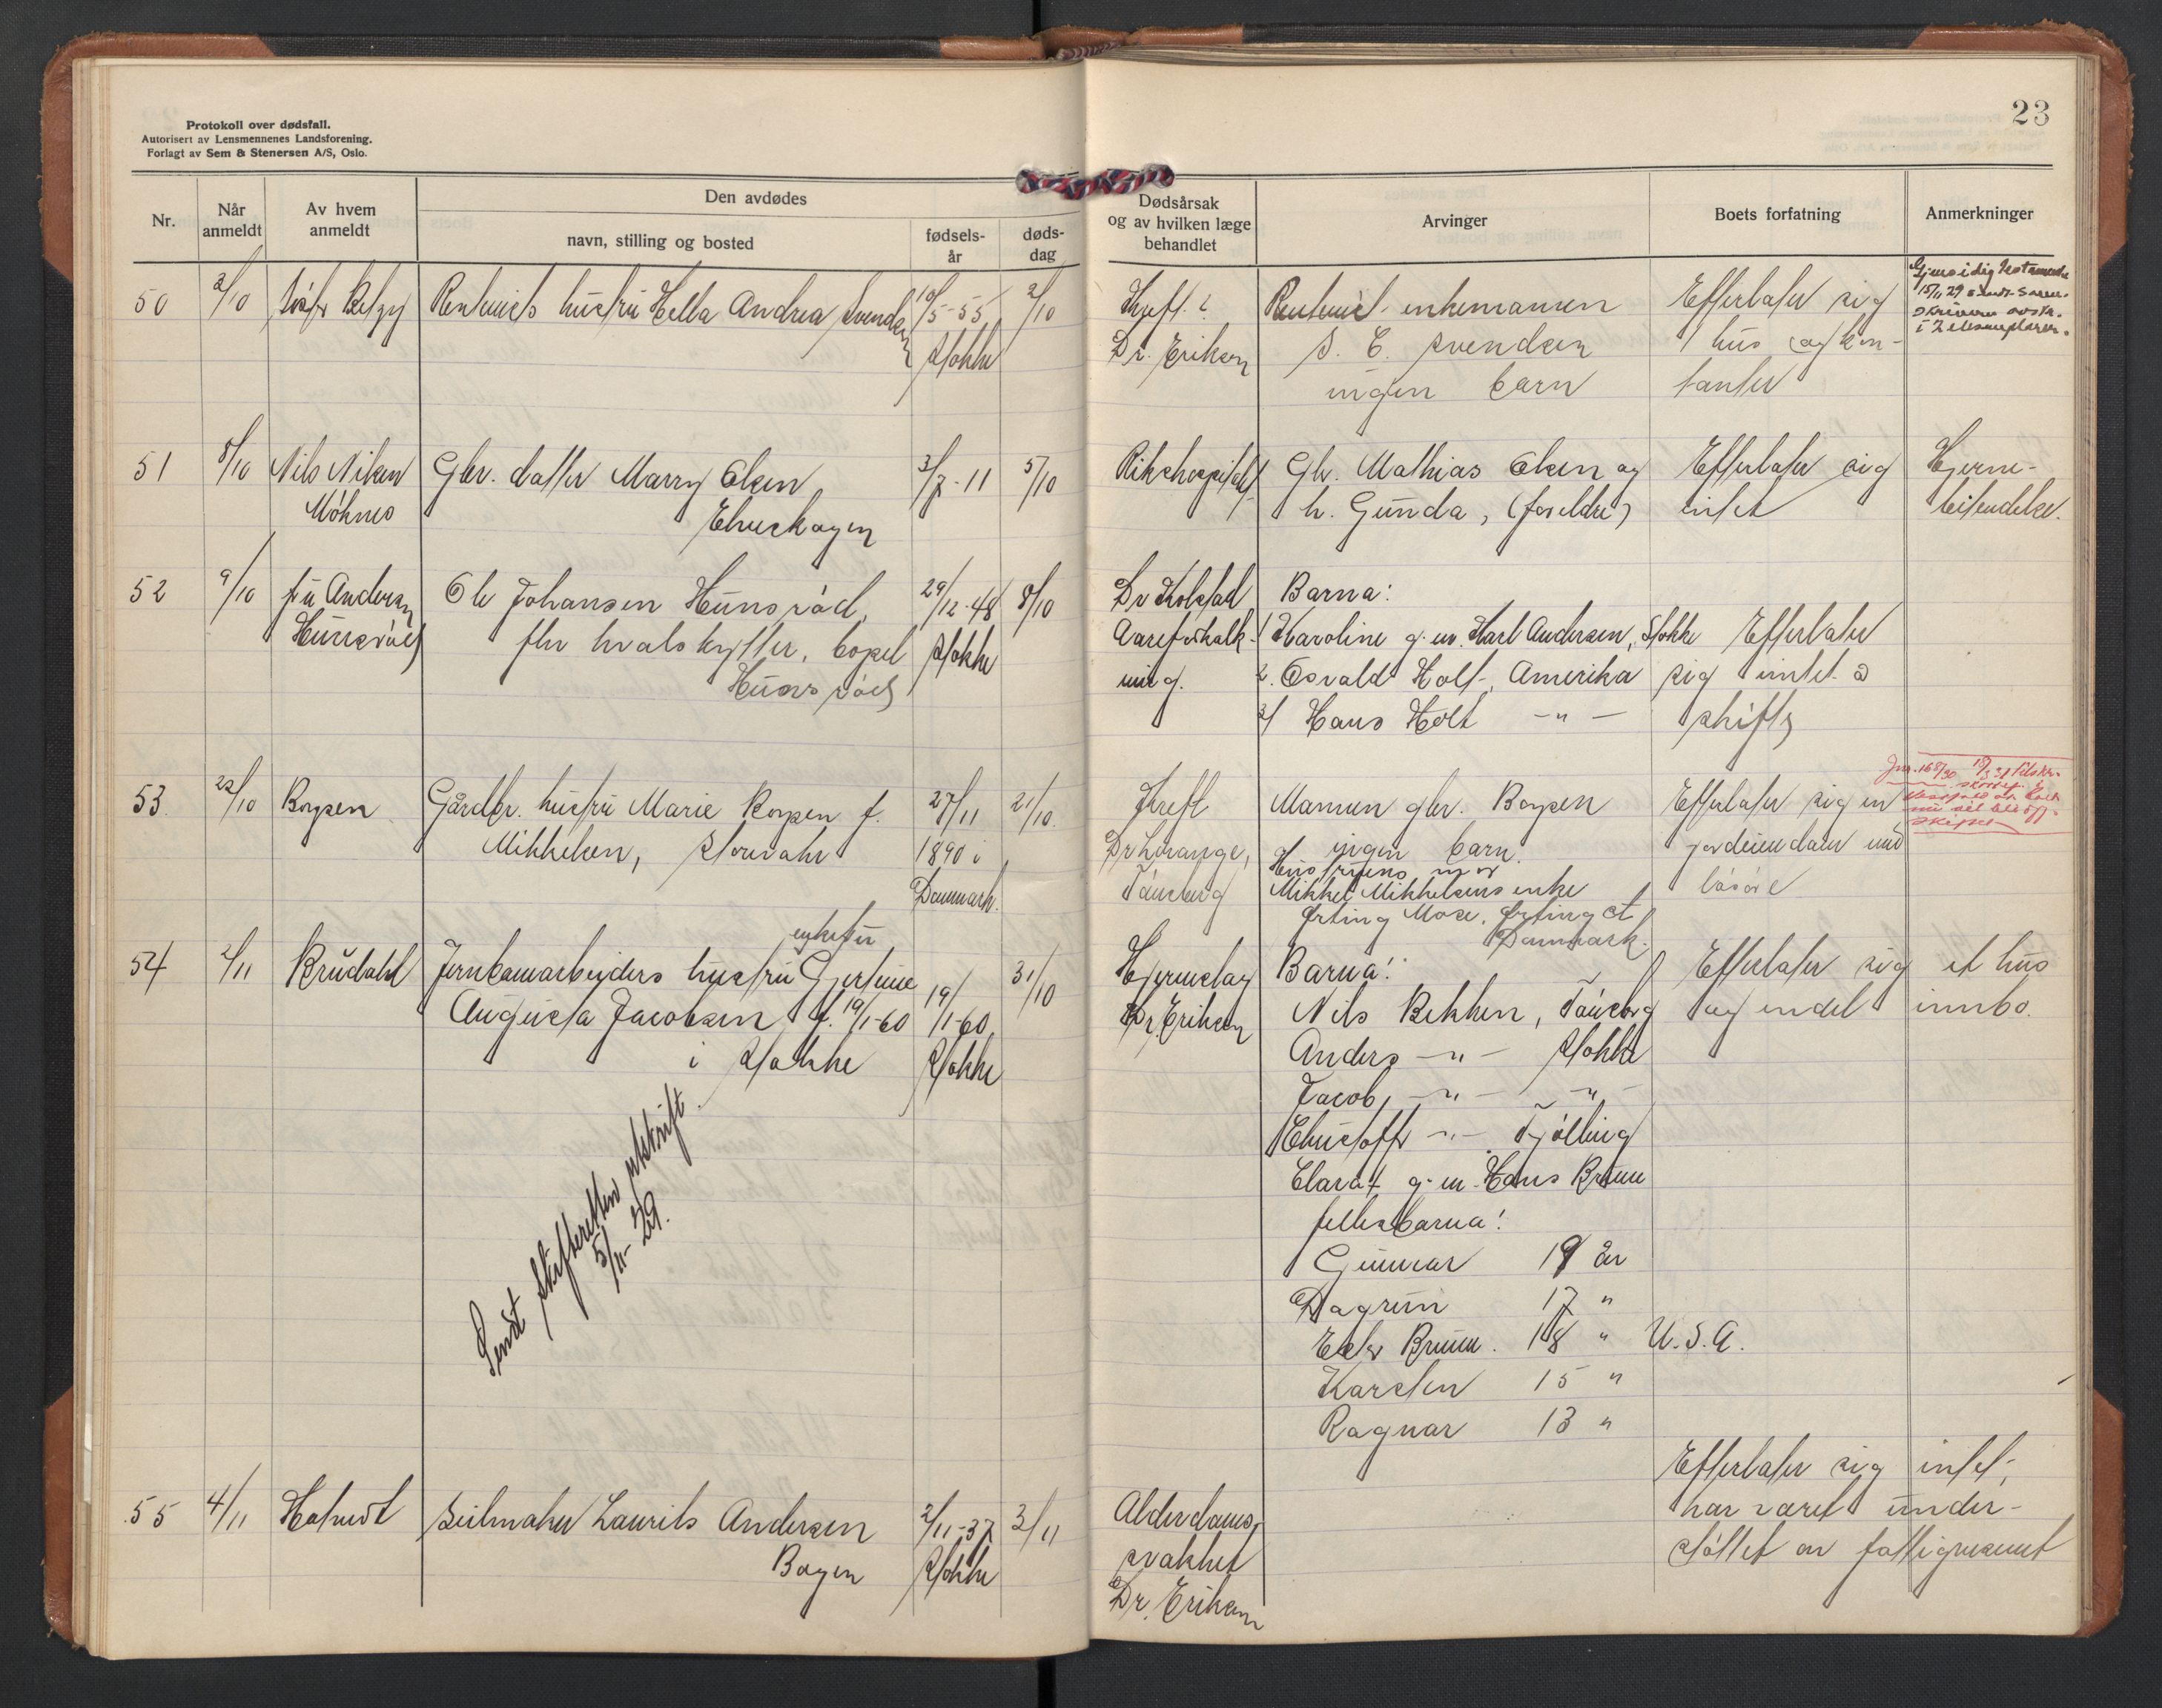 23
Protokoll over dødsfall.
Autorisert av Lensmennenes Landsforening.
Forlagt av Sem & Stenersen A/S, Oslo.
Nr.
Når anmeldt
Av hvem anmeldt
Den avdødes
navn, stilling og bosted
fødsels-år
døds-dag
Dødsårsak og av hvilken læge behandlet
Arvinger
Boets forfatning
Anmerkninger
50 2/10
Rentenists hustru Andrea Svendsen
10/5-55 2/10
Stokke
Kreft
Dr. Eriksen
Rentenist enkemannen
S. C. Svendsen
ingen barn
Efterlater sig
hus og kon-
tanter
Gjensidig Testamente
15/11 29
51 8/10 Nils Nilsen
Gbr. datter Marry Olsen
3/7-11 5/10
Rikshospitalet
Gbr. Mathias Olsen og
h. Gunda, (foreldre)
Efterlater sig
intet
Hjerne-
betendelse.
52 9/10 fru Andersen
Hunsrød
Ole Johansen Hunsrød,
fhv hvalskytter, bopel
Hunsrød
29/12-48 8/10
Stokke
Dr Kolstad
Aareforkalk-
ning.
Barna:
1/ Karoline g. m. Karl Andersen, Stokke
2. Osvald Holt, Amerika
3/ Hans Holt -"-
Efterlater
sig intet å
skifte
53 22/10 Boysen
Gårdbr. hustru Marie Boysen f.
Mikkelsen,
27/11 21/10.
1890 i
Danmark.
Kreft
Dr Lorange,
Tønsberg
Mannen gbr. Boysen
ingen barn.
Hustruens mor
Mikkel Mikkelsens enke
Ørting Mose, Ørting St
Danmark.
Efterlater sig en
jordeiendom med
løsøre
54 2/11 Brudahl
enkefru
Jernbanearbeiders hustru Gjertine
Augusta Jacobsen f. 19/1-60
i Stokke
19/1-60 31/10
Stokke
Hjerneslag
Dr Eriksen
Barna:
Nils Bekken, Tønsberg
Anders -"- Stokke
Jacob, -"- -"-
Kristoffer -"- Tjølling
Clara g. m. Hans Bruun
fellesbarna:
Gunnar 19 år
Dagrun 17 "
Bruun. 18 " U.S.A.
Karsten 15 "
Ragnar 13 "
Efterlater sig et hus
og endel innbo.
Sendt skifteretten utskrift
5/11-29.
55 4/11
Seilmaker Laurits Andersen
Bogen
2/11-37 3/11
Stokke
Alderdoms-
svakhet
Dr. Eriksen
Efterlater sig intet,
har været under-
støttet av fattigvesenet